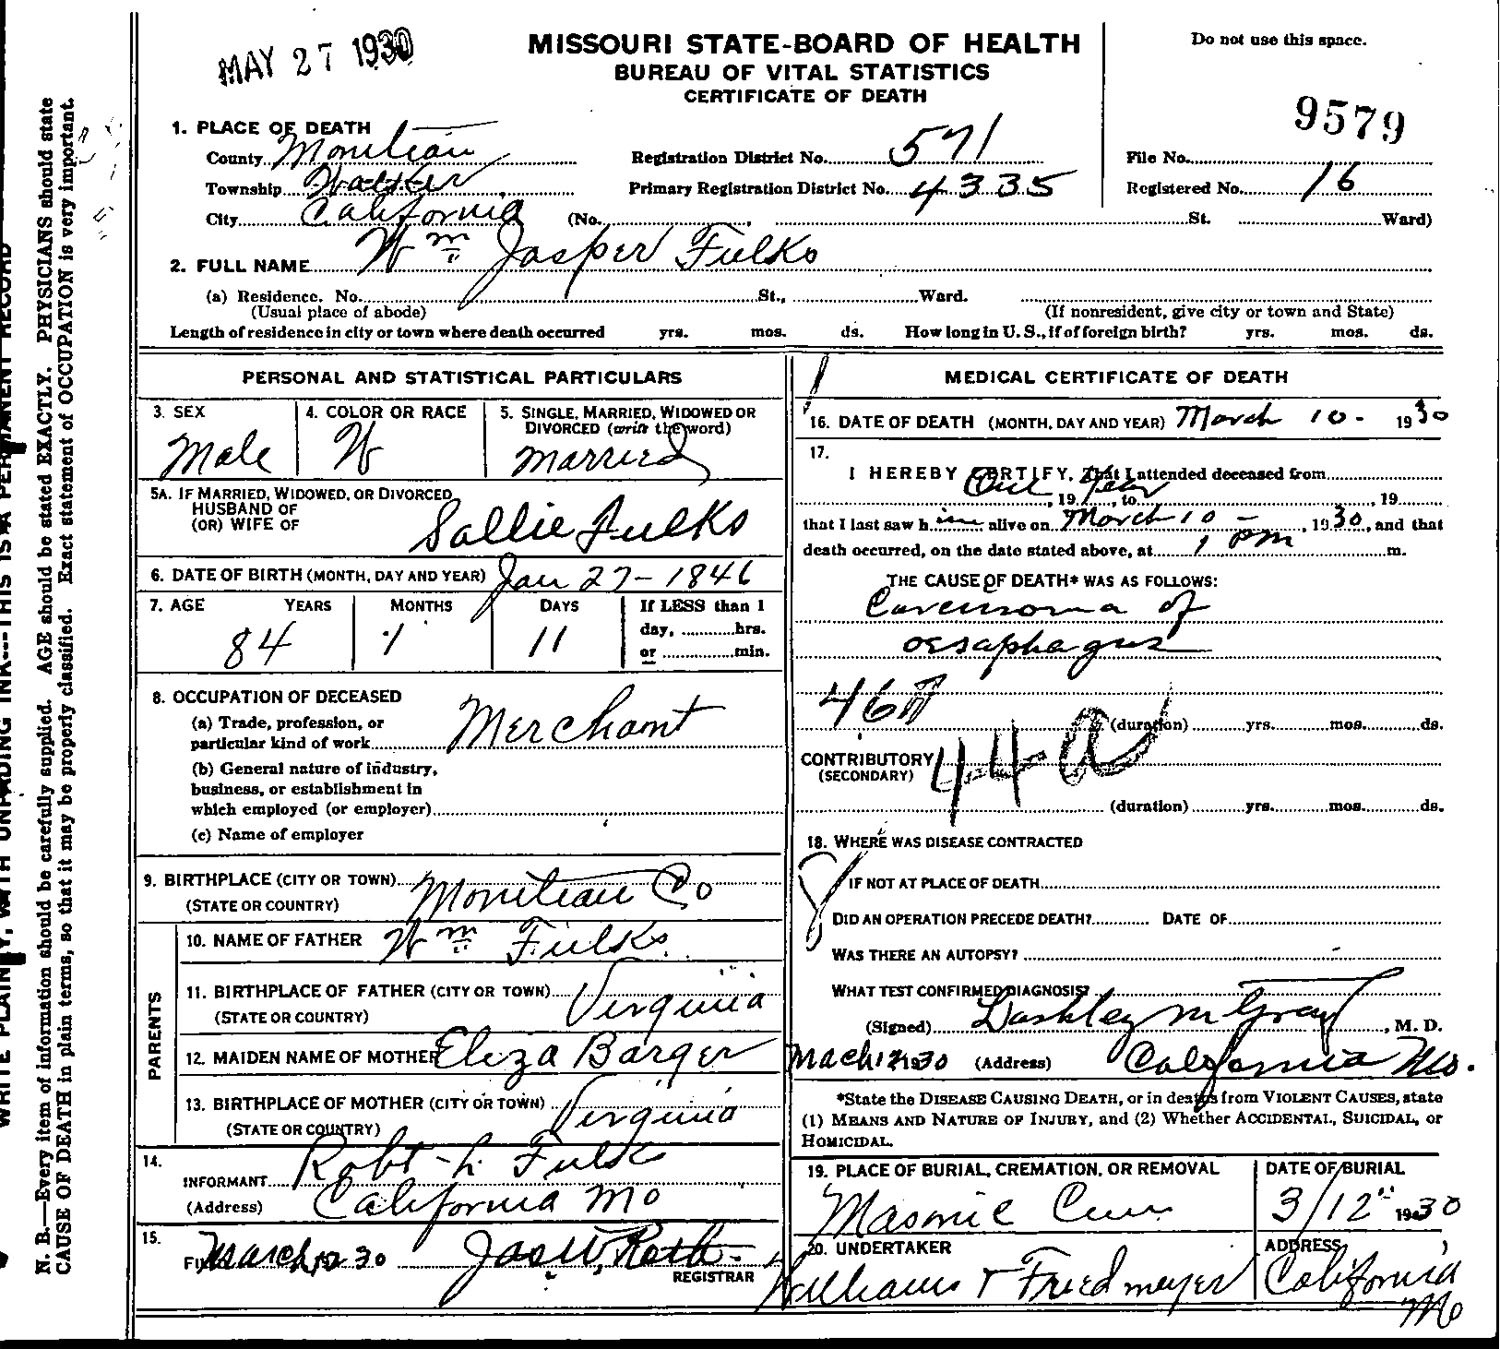 MAY 27 1930
MISSOURI STATE BOARD OF HEALTH
BUREAU OF VITAL STATISTICS
CERTIFICATE OF DEATH
Do not use this space.
9579
1. PLACE OF DEATH
County Moniteau Registration District No. 571 File No.
Township Walker Primary Registration District No. 4335 Registered No. 16
City California (No. , St. Ward)
2. FULL NAME Wm Jasper Fulks
(a) Residence. No. St., Ward.
(Usual place of abode) (If nonresident, give city or town and State)
Length of residence in city or town where death occurred yrs. mos. ds. How long in U. S., if of foreign birth? yrs. mos. ds.
PERSONAL AND STATISTICAL PARTICULARS
3. SEX 4. COLOR OR RACE 5. SINGLE, MARRIED, WIDOWED OR
DIVORCED (write the word)
Male W Married
5A. IF MARRIED, WIDOWED, OR DIVORCED
HUSBAND OF
(OR) WIFE OF Sallie Fulks
6. DATE OF BIRTH (MONTH, DAY AND YEAR) Jan 27-1846
7. AGE YEARS MONTHS DAYS If LESS than 1
day, hrs.
or min.
84 1 11
8. OCCUPATION OF DECEASED
(a) Trade, profession, or
particular kind of work Merchant
(b) General nature of industry,
business, or establishment in
which employed (or employer)
(c) Name of employer
9. BIRTHPLACE (CITY OR TOWN) Moniteau Co
(STATE OR COUNTRY)
PARENTS
10. NAME OF FATHER Wm Fulks
11. BIRTHPLACE OF FATHER (CITY OR TOWN) Virginia
(STATE OR COUNTRY)
12. MAIDEN NAME OF MOTHER Eliza Barger
13. BIRTHPLACE OF MOTHER (CITY OR TOWN) Virginia
(STATE OR COUNTRY)
14.
INFORMANT Robt L. Fulks
(Address) California Mo
15.
March 12 30 Jas W. Roth
REGISTRAR
MEDICAL CERTIFICATE OF DEATH
16. DATE OF DEATH (MONTH, DAY AND YEAR) March 10- 1930
17.
I HEREBY CERTIFY, That I attended deceased from
One , 19 Year, to , 19
that I last saw him alive on March 10 - , 1930, and that
death occurred, on the date stated above, at 1 pm m.
THE CAUSE OF DEATH* WAS AS FOLLOWS:
of
46
(duration) yrs. mos. ds.
CONTRIBUTORY 44a
(SECONDARY)
(duration) yrs. mos. ds.
18. WHERE WAS DISEASE CONTRACTED
IF NOT AT PLACE OF DEATH
DID AN OPERATION PRECEDE DEATH? DATE OF
WAS THERE AN AUTOPSY?
WHAT TEST CONFIRMED DIAGNOSIS?
(Signed) , M. D.
March 12 1930 (Address) California Mo.
*State the DISEASE CAUSING DEATH, or in deaths from VIOLENT CAUSES, state
(1) MEANS AND NATURE OF INJURY, and (2) Whether ACCIDENTAL, SUICIDAL, or
HOMICIDAL.
19. PLACE OF BURIAL, CREMATION, OR REMOVAL DATE OF BURIAL
Masonic Cem 3/12 1930
20. UNDERTAKER ADDRESS
Williams & Friedmeyer California
Mo
N. B.—Every item of information should be carefully supplied. AGE should be stated EXACTLY. PHYSICIANS should state
CAUSE OF DEATH in plain terms, so that it may be properly classified. Exact statement of OCCUPATION is very important.
WRITE PLAINLY, WITH UNFADING INK---THIS IS A PERMANENT RECORD